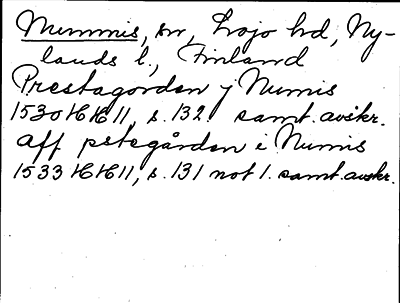 Nummis, sn, Lojo hd, Ny-
lands l., Finland
Prestagorden j Numis
1530 16/6 11, s. 132 samt. avskr.
aff pstegården i Numis
1533 16/6 11, s. 131 not 1. samt. avskr.